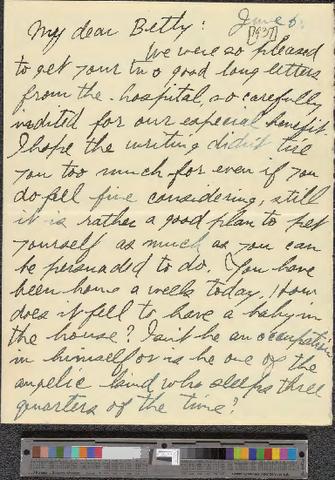 June 6.
[1937]
My dear Betty:
We were so pleased
to get your two good long letters
from the hospital, so carefully
indited for our especial benefit
I hope the writing didn't tire
you too much for even if you
do fell fine considering, still
it is rather a good plan to pet
yourself as much as you can
be persuaded to do. You have
been home a week today, How
does it fell to have a baby in
the house? Isn't he an occupation
in himself or is he one of the
angelic kind who sleeps three
quarters of the time?